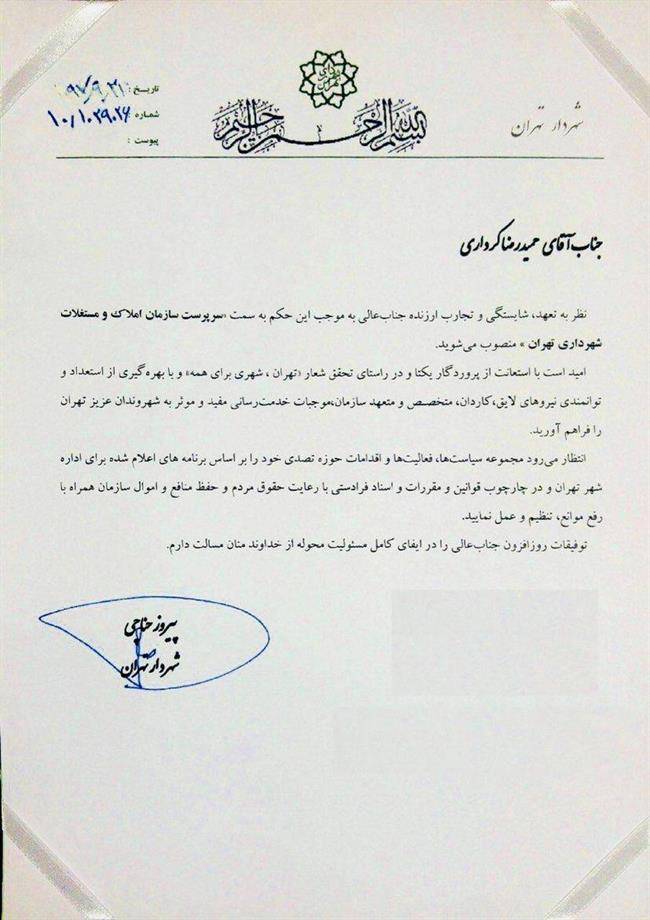 شهردار تهران
شهرداری تهران
بسم الله الرحمن الرحیم
تاریخ : ۹۷/۹/۲۱
شماره ۱۰/۱۰۲۹۰۲۶
پیوست :
جناب آقای حمیدرضا کرداری
نظر به تعهد، شایستگی و تجارب ارزنده جناب‌عالی به موجب این حکم به سمت «سرپرست سازمان املاک و مستغلات
شهرداری تهران » منصوب می‌شوید.
امید است با استعانت از پروردگار یکتا و در راستای تحقق شعار «تهران ، شهری برای همه» و با بهره‌گیری از استعداد و
توانمندی نیروهای لایق،کاردان، متخصص و متعهد سازمان،موجبات خدمت‌رسانی مفید و موثر به شهروندان عزیز تهران
را فراهم آورید.
انتظار می‌رود مجموعه سیاست‌ها، فعالیت‌ها و اقدامات حوزه تصدی خود را بر اساس برنامه های اعلام شده برای اداره
شهر تهران و در چارچوب قوانین و مقررات و اسناد فرادستی با رعایت حقوق مردم و حفظ منافع و اموال سازمان همراه با
رفع موانع، تنظیم و عمل نمایید.
توفیقات روزافزون جناب‌عالی را در ایفای کامل مسئولیت محوله از خداوند منان مسالت دارم.
پیروز حناچی
شهردار تهران